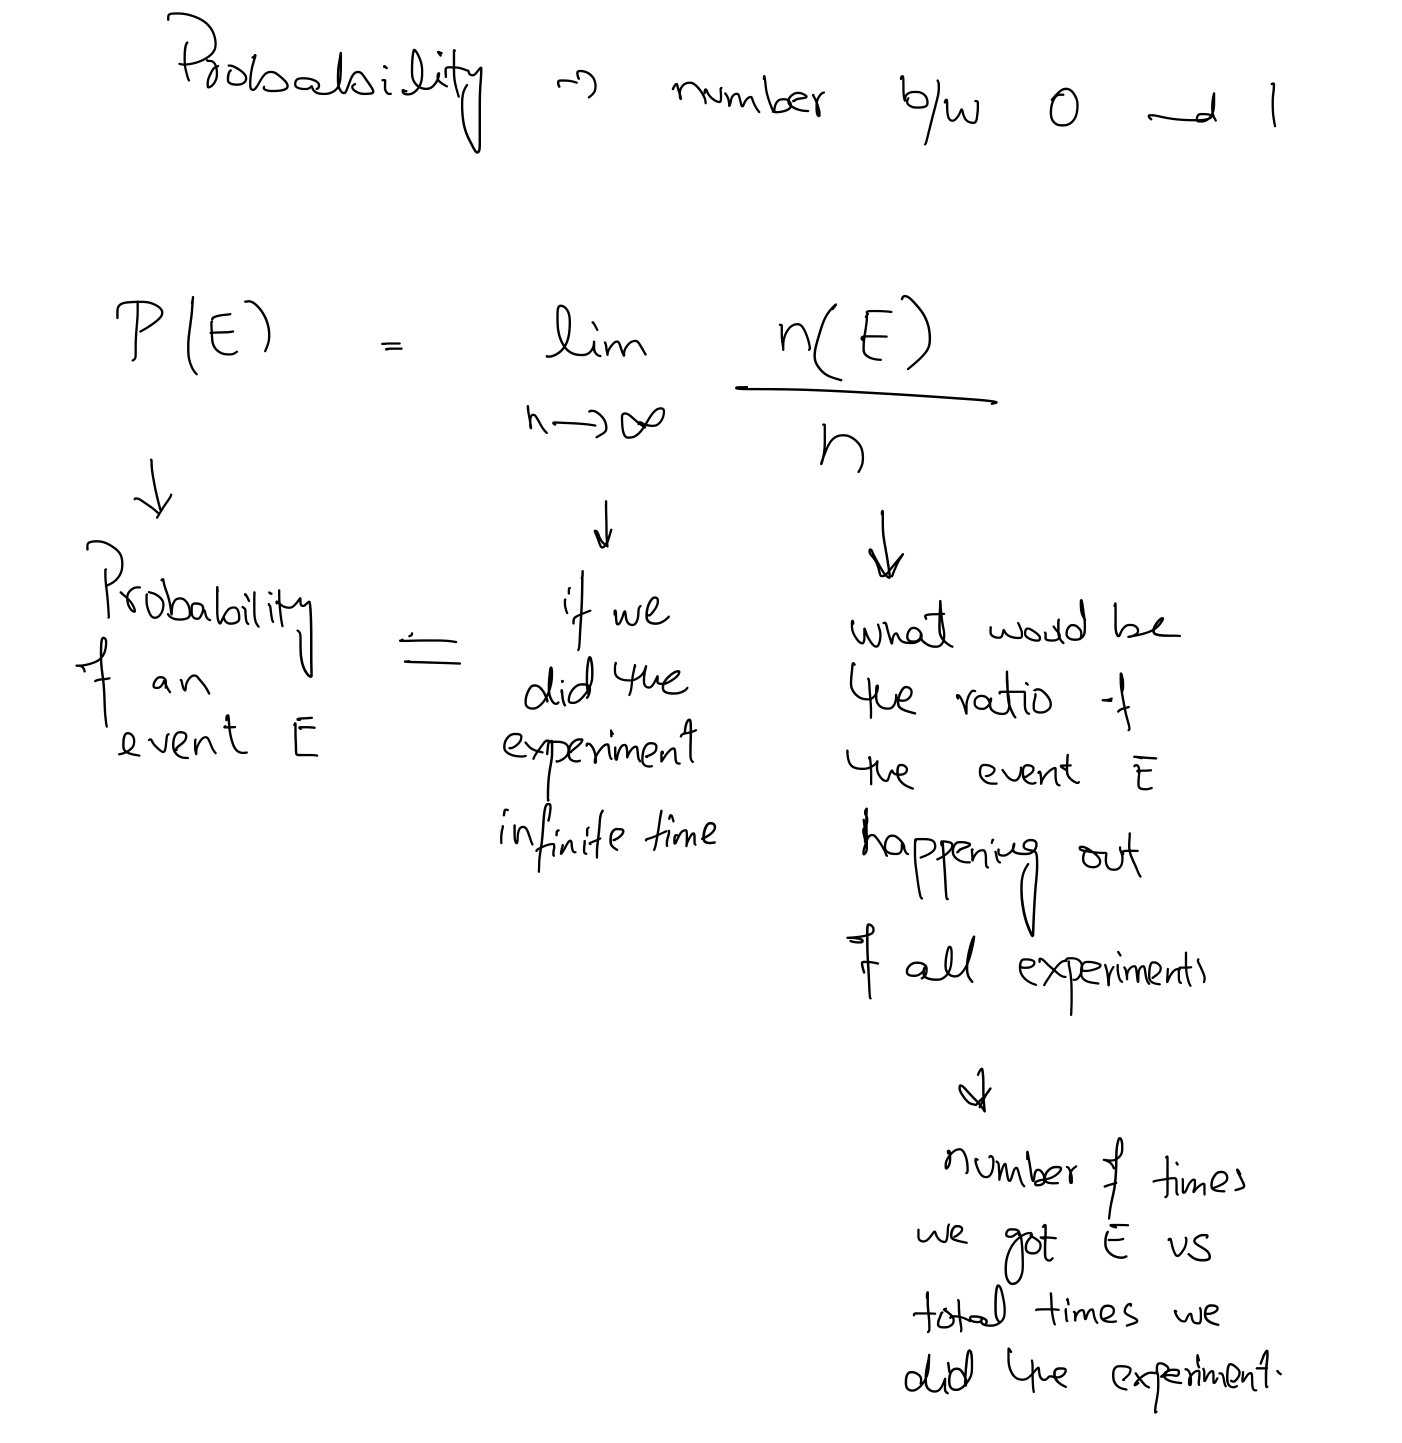 Probability → number b/w 0 and 1
P(E) = lim n(E)
n→∞ n
↓ ↓ ↓
Probability
of an
event E
=
if we
did the
experiment
infinite time
what would be
the ratio of
the event E
happening out
of all experiments
↓
number of times
we got E vs
total times we
did the experiment.